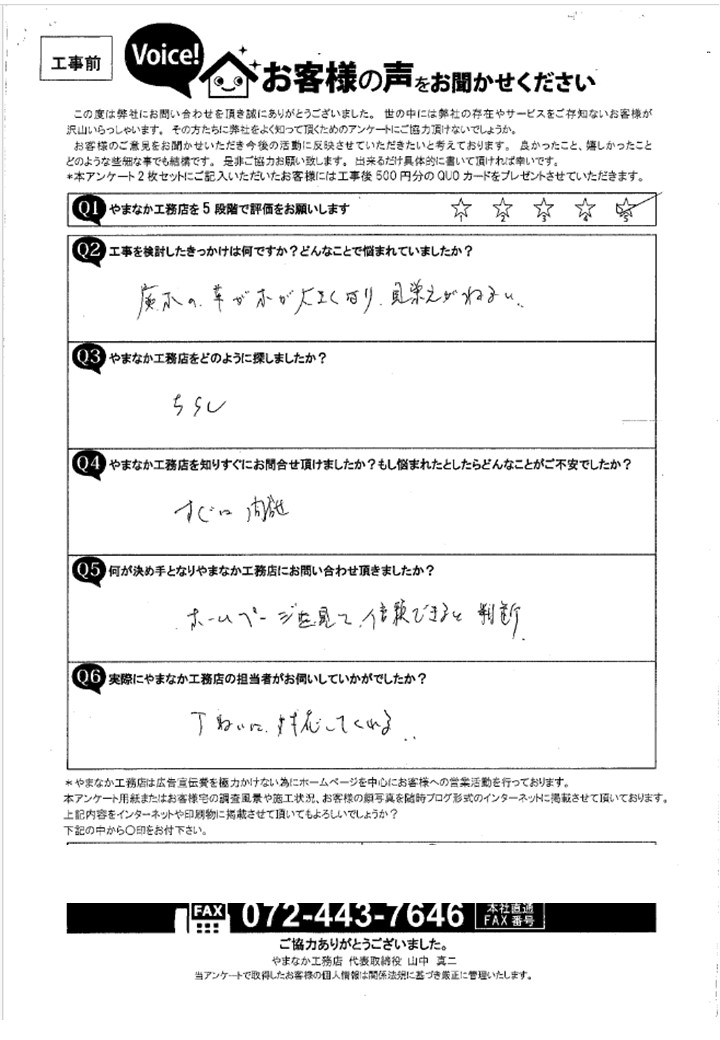 工事前
Voice!
お客様の声をお聞かせください
この度は弊社にお問い合わせを頂き誠にありがとうございました。 世の中には弊社の存在やサービスをご存知ないお客様が
沢山いらっしゃいます。 その方たちに弊社をよく知って頂くためのアンケートにご協力頂けないでしょうか。
お客様のご意見をお聞かせいただき今後の活動に反映させていただきたいと考えております。 良かったこと、嬉しかったこと
どのような些細な事でも結構です。 是非ご協力お願い致します。 出来るだけ具体的に書いて頂ければ幸いです。
*本アンケート2枚セットにご記入いただいたお客様には工事後500円分のQUOカードをプレゼントさせていただきます。
Q1 やまなか工務店を5段階で評価をお願いします
2 3 4 5
Q2 工事を検討したきっかけは何ですか？どんなことで悩まれていましたか？
の、草が木が大きくなり、見栄えがわるい。
Q3 やまなか工務店をどのように探しましたか？
ちらし
Q4 やまなか工務店を知りすぐにお問合せ頂けましたか？もし悩まれたとしたらどんなことがご不安でしたか？
すぐに
Q5 何が決め手となりやまなか工務店にお問い合わせ頂きましたか？
ホームページを見て、信頼できると判断
Q6 実際にやまなか工務店の担当者がお伺いしていかがでしたか？
丁ねいに、対応してくれる。
*やまなか工務店は広告宣伝費を極力かけない為にホームページを中心にお客様への営業活動を行っております。
本アンケート用紙またはお客様宅の調査風景や施工状況、お客様の顔写真を随時ブログ形式のインターネットに掲載させて頂いております。
上記内容をインターネットや印刷物に掲載させて頂いてもよろしいでしょうか？
下記の中から〇印をお付下さい。
FAX 072-443-7646 本社直通
FAX番号
ご協力ありがとうございました。
やまなか工務店 代表取締役 山中 真二
当アンケートで取得したお客様の個人情報は関係法規に基づき厳正に管理いたします。